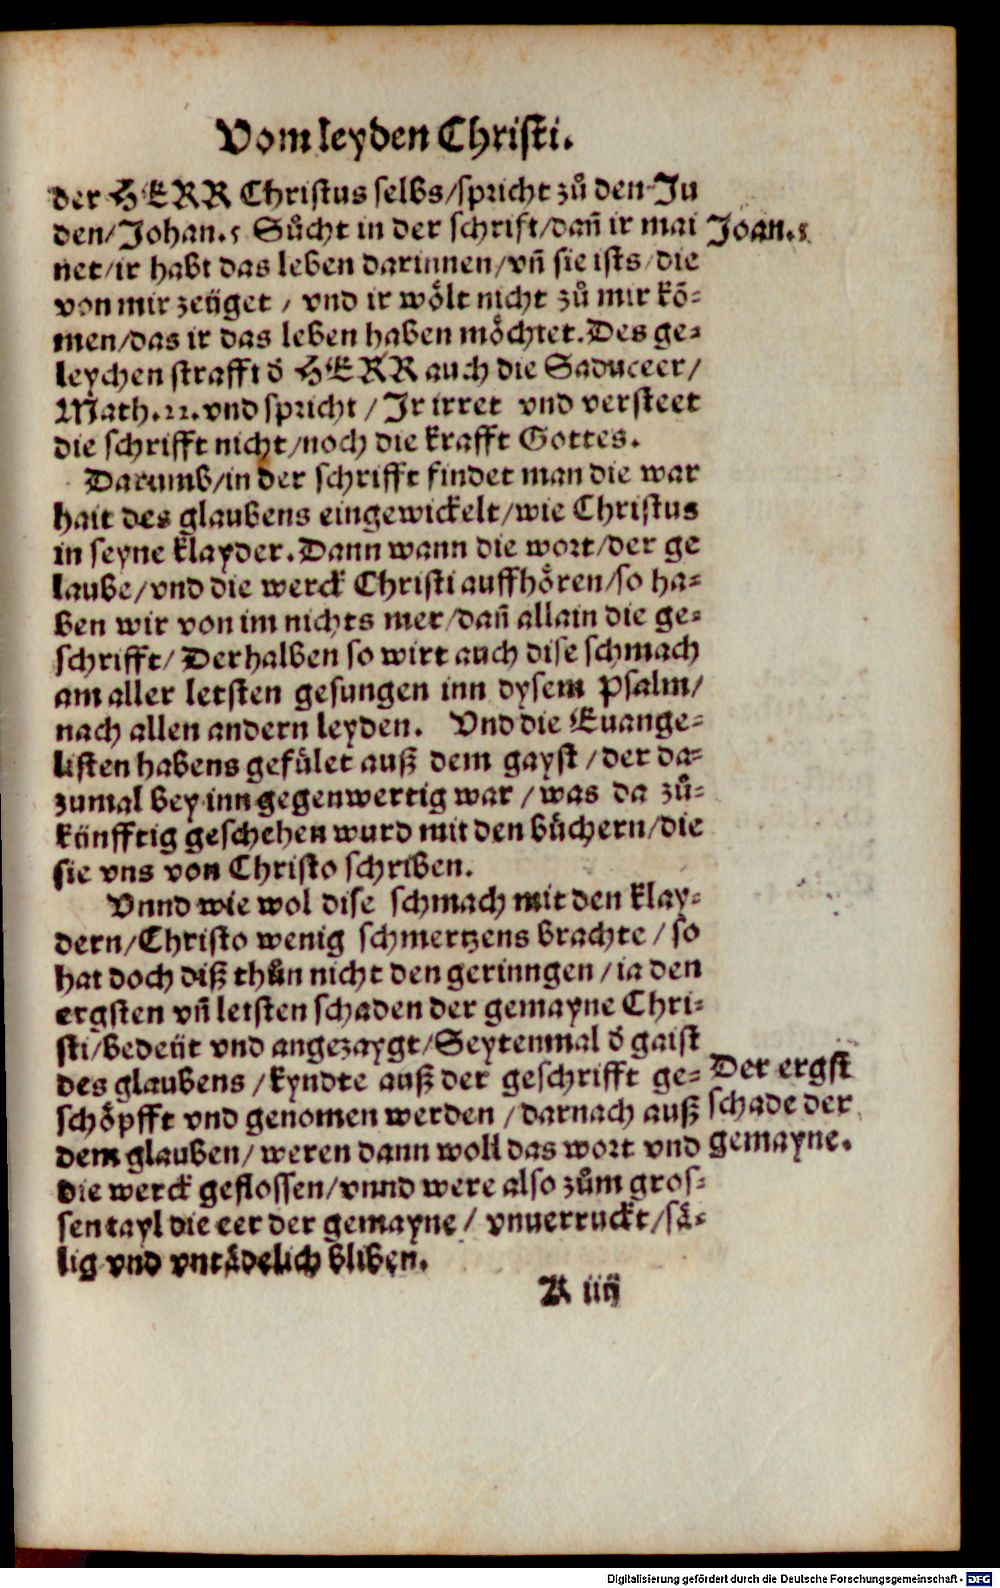 Vom leyden Christi.
der HERR Christus selbs/spricht zů den Ju
den/Johan.5 Sůcht in der schrifft/dañ ir mai
Joan.5
net/ir habt das leben darinnen/vñ sie ists/die
von mir zeüget / vnd ir wölt nicht zů mir kõ-
men/das ir das leben haben möchtet. Des ge-
leychen strafft d̕ HERR auch die Saduceer/
Math.22.vnd spricht / Jr irret vnd versteet
die schrifft nicht/noch die krafft Gottes.
Darumb/in der schrifft findet man die war
hait des glaubens eingewickelt/wie Christus
in seyne klayder. Dann wann die wort/der ge
laube/vnd die werck Christi auffhören/so ha-
ben wir von im nichts mer/dañ allain die ge-
schrifft/ Derhalben so wirt auch dise schmach
am aller letsten gesungen inn dysem Psalm/
nach allen andern leyden. Vnd die Euange-
listen habens gefület auß dem gayst / der da-
zumal bey inn gegenwertig war / was da zů-
künfftig geschehen wurd mit den bůchern/die
sie vns von Christo schriben.
Vnnd wie wol dise schmach mit den klay-
dern/Christo wenig schmertzens brachte / so
hat doch diß thůn nicht den gerinngen / ia den
ergsten vñ letsten schaden der gemayne Chri-
sti/bedeüt vnd angezaygt/Seytenmal d̕ gaist
des glaubens / kyndte auß der geschrifft ge-
Der ergst
schöpfft vnd genomen werden / darnach auß
schade der
dem glauben/ weren dann woll das wort vnd
gemayne.
die werck geflossen/vnnd were also zům gros-
sen tayl die eer der gemayne / vnuerruckt/sä-
lig vnd vntädelich bliben.
A iiij
Digitalisierung gefördert durch die Deutsche Forschungsgemeinschaft - DFG